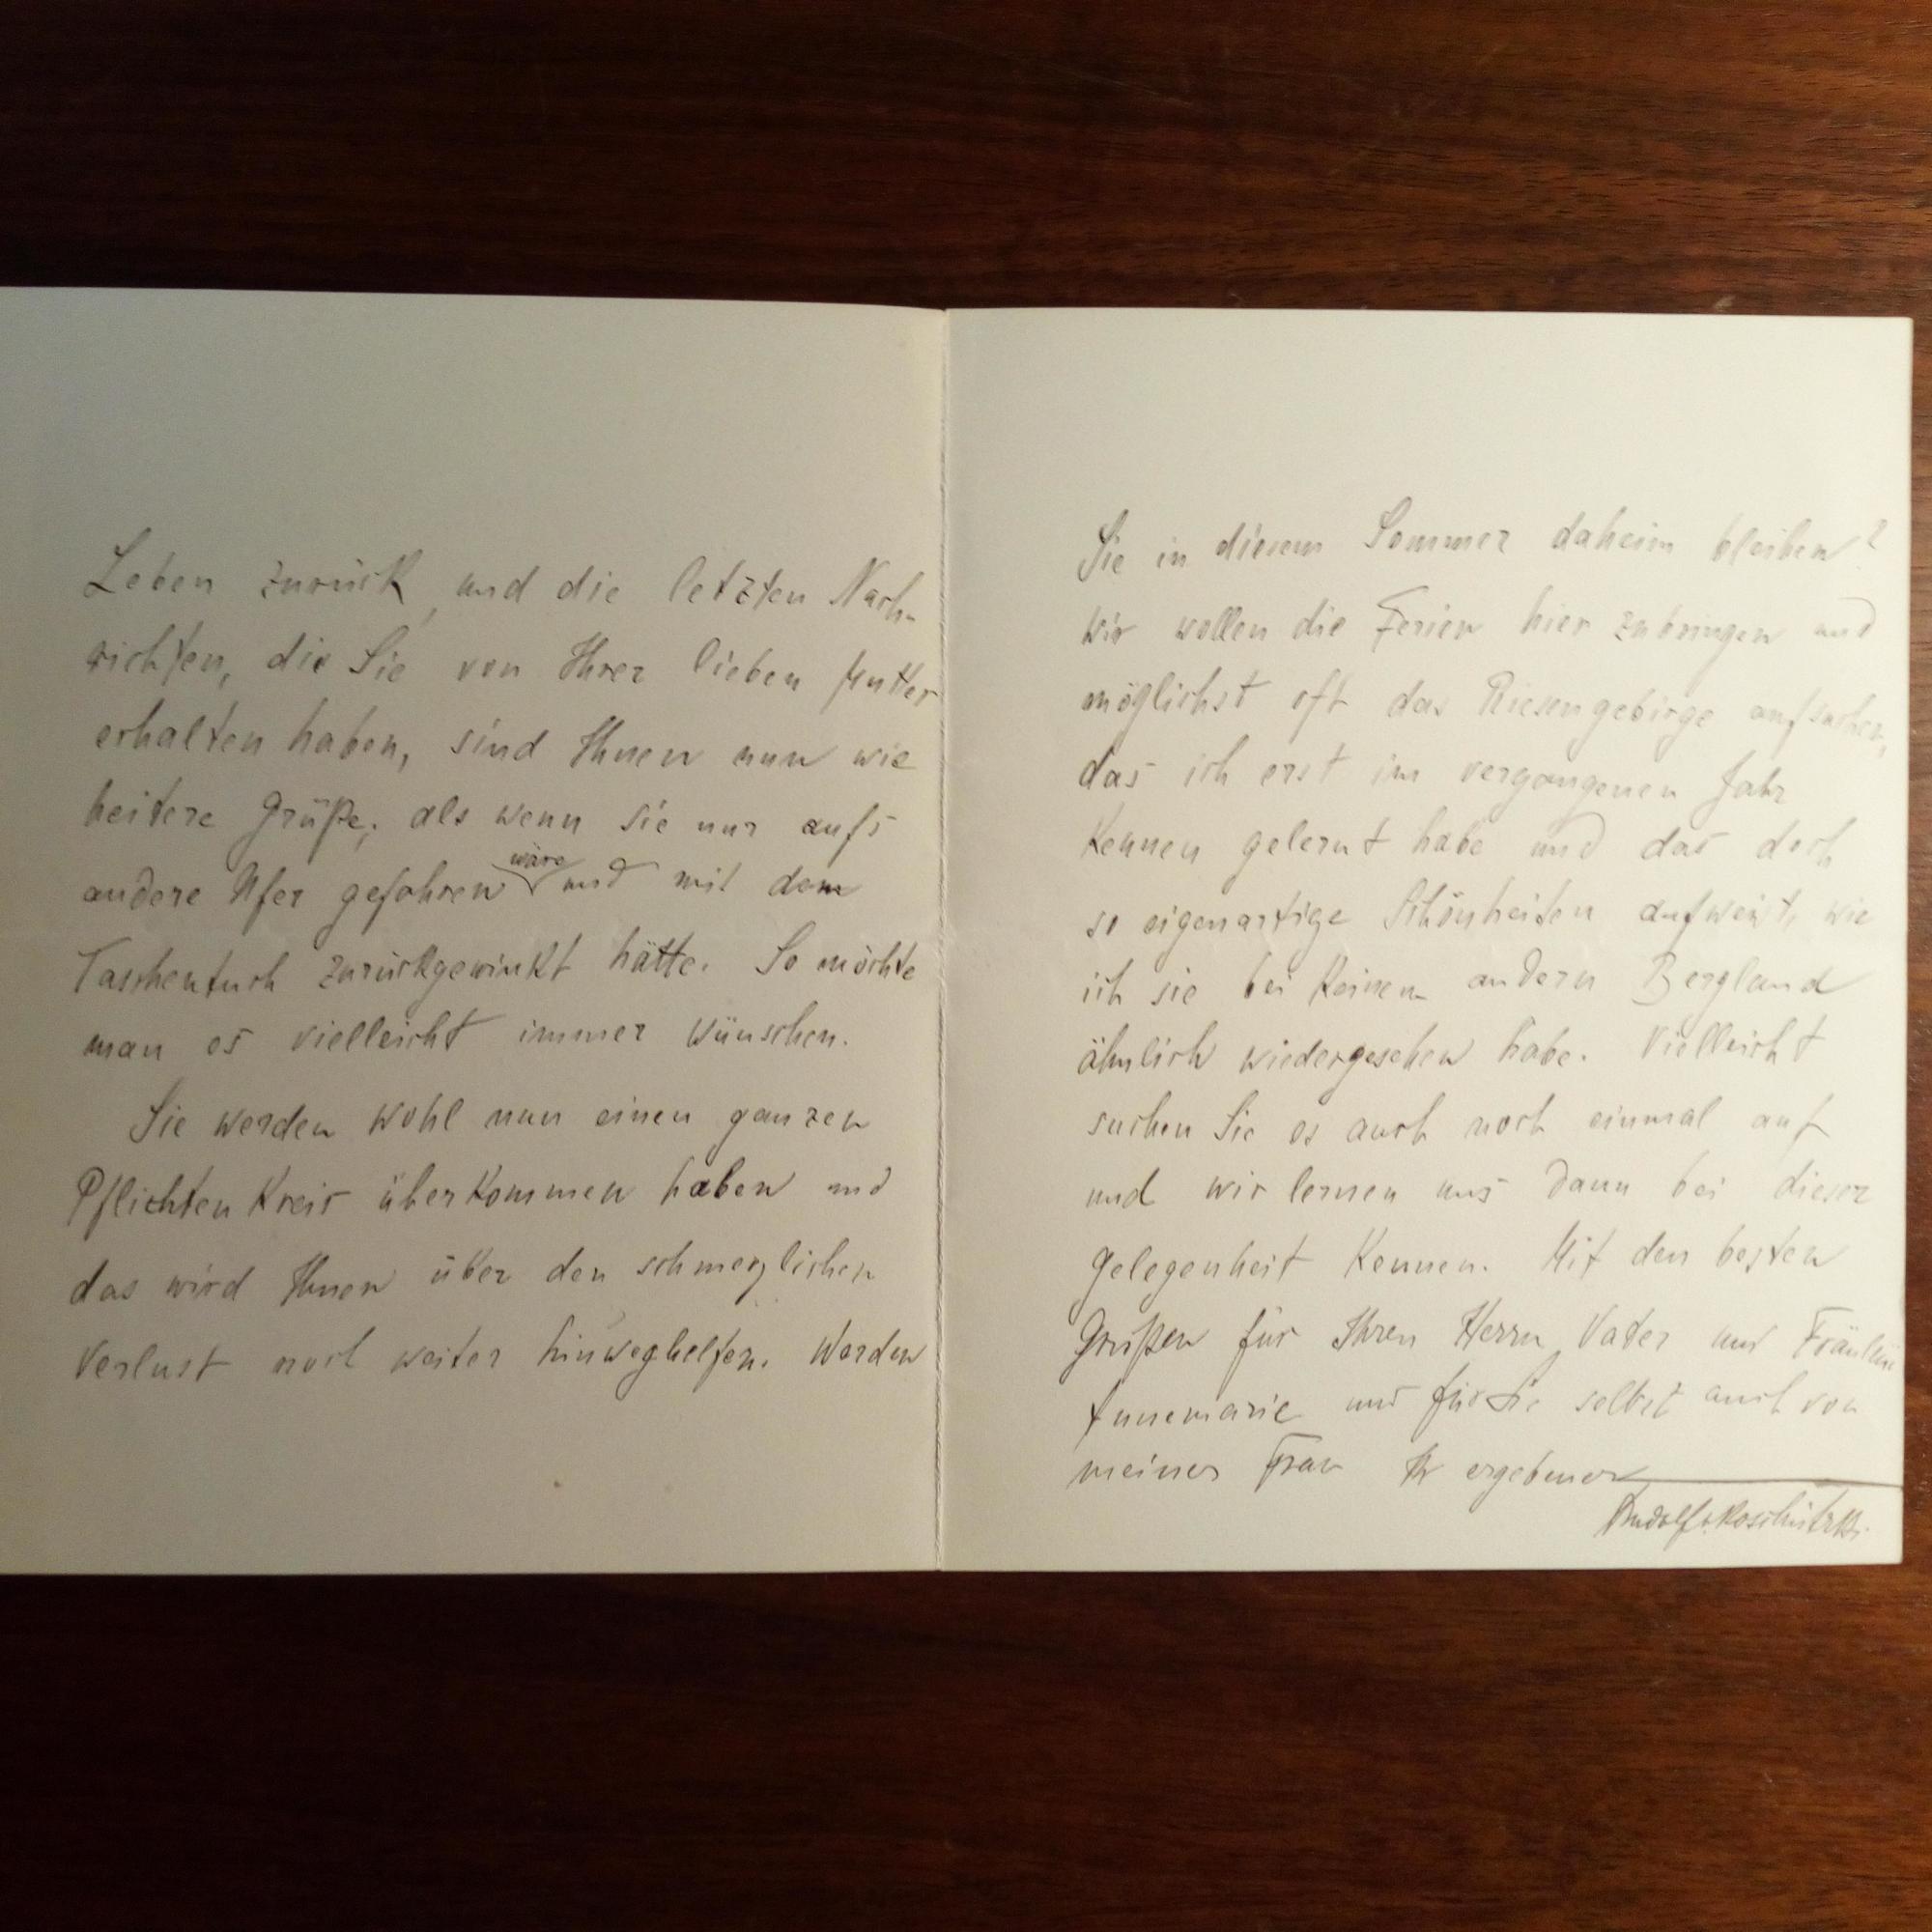 Leben zurück, und die letzten Nach-
richten, die Sie von Ihrer lieben Mutter
erhalten haben, sind Ihnen nun wie
heitere Grüße, als wenn sie nur aufs
andere Ufer gefahren wäre und mit dem
Taschentuch zurückgewinkt hätte. So möchte
man es vielleicht immer wünschen.
Sie werden wohl nun einen ganzen
Pflichtenkreis überkommen haben und
das wird Ihnen über den schmerzlichen
Verlust noch weiter hinweghelfen. Werden
Sie in diesem Sommer daheim bleiben?
Wir wollen die Ferien hier zubringen und
möglichst oft das Riesengebirge aufsuchen,
das ich erst im vergangenen Jahr
kennen gelernt habe und das doch
so eigenartige Schönheiten aufweist, wie
ich sie bei keinem andern Bergland
ähnlich wiedergesehen habe. Vielleicht
suchen Sie es auch noch einmal auf
und wir lernen uns dann bei dieser
Gelegenheit kennen. Mit den besten
Grüßen für Ihren Herrn Vater und Fräulein
Annemarie und für Sie selbst auch von
meiner Frau Ihr ergebener
Rudolf